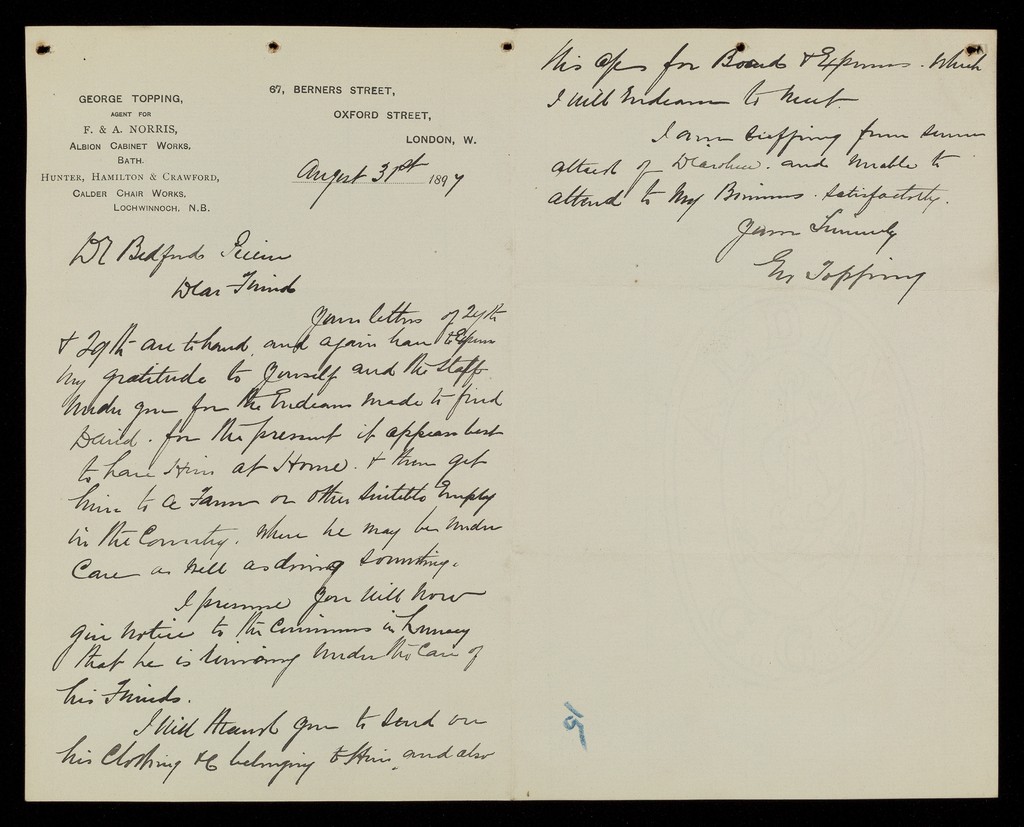 GEORGE TOPPING,
AGENT FOR
F. & A. NORRIS,
ALBION CABINET WORKS,
BATH.
HUNTER, HAMILTON & CRAWFORD,
CALDER CHAIR WORKS,
LOCHWINNOCH, N.B.
67, BERNERS STREET,
OXFORD STREET,
LONDON, W.
August 31st 1897
Dr Bedford Pierce
Dear Friend
Your letters of 24th
& 29th are to hand, and again have to Express
my gratitude to yourself and the Staff
under you for the Endeavours made to find
David. for the present it appears best
to have Him at Home. & then get
him to a Farm or other suitable Employ
in the Country. where he may be under
Care as well as doing something.
I presume you will now
give Notice to the Commrs in Lunacy
that he is remaining under the Care of
his Friends.
I will thank you to send on
his Clothing &c belonging to Him, and also
this a/c for Board & Expenses. which
I will Endeavour to meet
I am suffering from severe
attack of Diarrhoea. and unable to
attend to My Business satisfactorily.
Yours Sincerely
Geo Topping
15